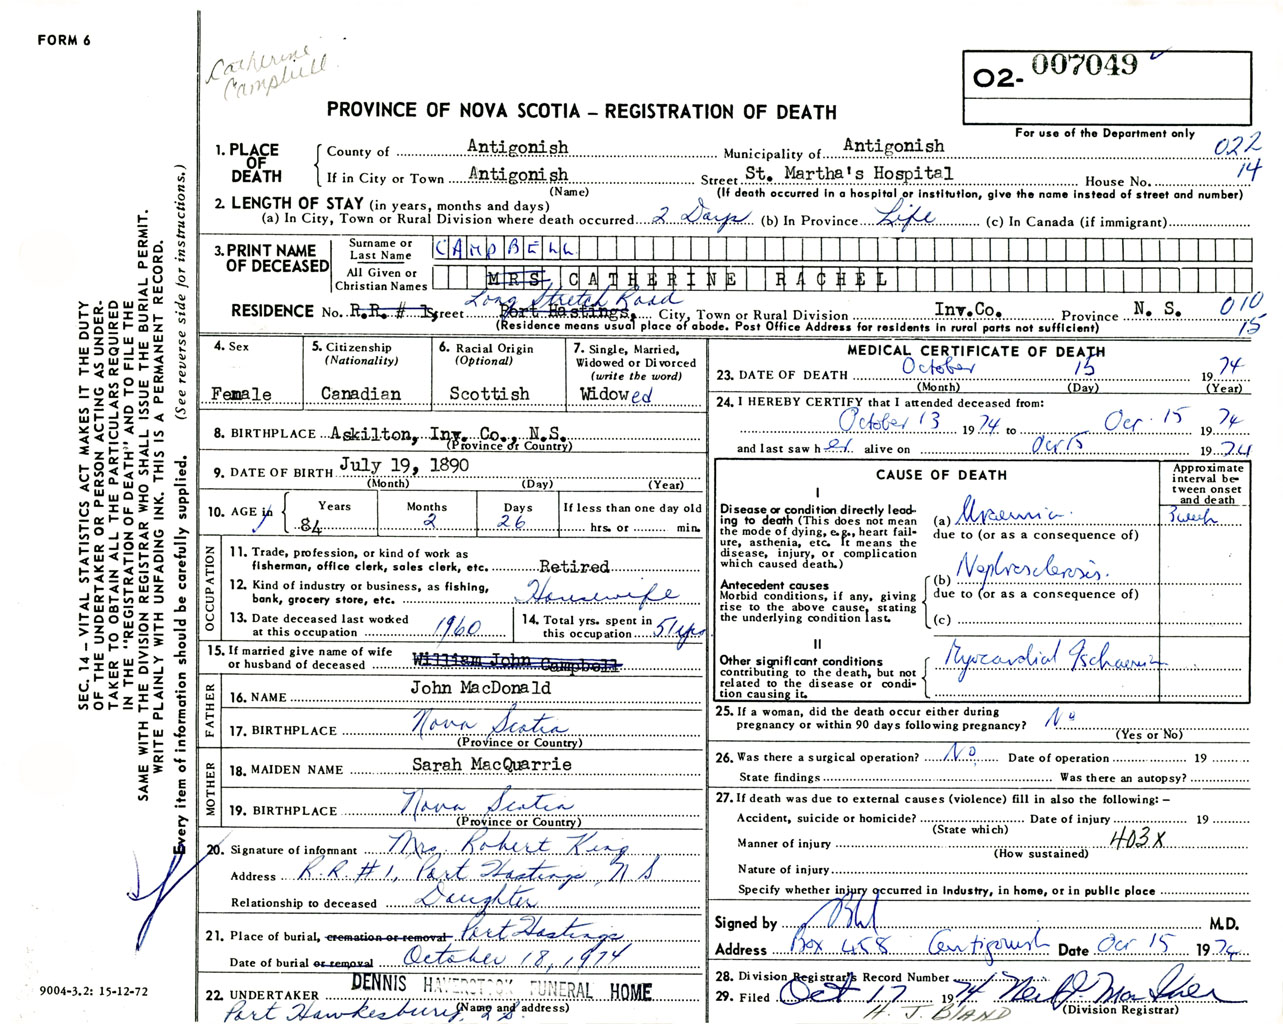 FORM 6
Catherine
Campbell
02- 007049
For use of the Department only
PROVINCE OF NOVA SCOTIA – REGISTRATION OF DEATH
022
14
1. PLACE OF DEATH { County of Antigonish Municipality of Antigonish
If in City or Town Antigonish Street St. Martha's Hospital House No.
(Name) (If death occurred in a hospital or institution, give the name instead of street and number)
2. LENGTH OF STAY (in years, months and days)
(a) In City, Town or Rural Division where death occurred 2 Days (b) In Province Life (c) In Canada (if immigrant)
3. PRINT NAME OF DECEASED
Surname or Last Name CAMPBELL
All Given or Christian Names MRS CATHERINE RACHEL
Long Stretch Road
RESIDENCE No. R.R. # 1, Street Port Hastings, City, Town or Rural Division Inv.Co. Province N. S. 010
15
(Residence means usual place of abode. Post Office Address for residents in rural parts not sufficient)
4. Sex
Female
5. Citizenship
(Nationality)
Canadian
6. Racial Origin
(Optional)
Scottish
7. Single, Married,
Widowed or Divorced
(write the word)
Widowed
8. BIRTHPLACE Askilton, Inv. Co., N.S.
(Province or Country)
9. DATE OF BIRTH July 19, 1890
(Month) (Day) (Year)
10. AGE in { Years Months Days If less than one day old
84 2 26 hrs. or min.
OCCUPATION
11. Trade, profession, or kind of work as
fisherman, office clerk, sales clerk, etc. Retired
12. Kind of industry or business, as fishing,
bank, grocery store, etc. Housewife
13. Date deceased last worked
at this occupation 1960
14. Total yrs. spent in
this occupation 51 yrs
15. If married give name of wife
or husband of deceased William John Campbell
FATHER
16. NAME John MacDonald
17. BIRTHPLACE Nova Scotia
(Province or Country)
MOTHER
18. MAIDEN NAME Sarah MacQuarrie
19. BIRTHPLACE Nova Scotia
(Province or Country)
20. Signature of informant Mrs. Robert King
Address R.R #1, Port Hastings, N S
Relationship to deceased Daughter
21. Place of burial, cremation or removal Port Hastings
Date of burial or removal October 18, 1974
22. UNDERTAKER DENNIS HAVERSTOCK FUNERAL HOME
(Name and address)
Port Hawkesbury, N.S.
MEDICAL CERTIFICATE OF DEATH
23. DATE OF DEATH October 15 1974
(Month) (Day) (Year)
24. I HEREBY CERTIFY that I attended deceased from:
October 13 1974 to Oct. 15 1974
and last saw her alive on Oct 15 1974
CAUSE OF DEATH
Approximate
interval be-
tween onset
and death
I
Disease or condition directly lead-
ing to death (This does not mean
the mode of dying, e.g., heart fail-
ure, asthenia, etc. It means the
disease, injury, or complication
which caused death.)
(a) Uraemia 3 week
due to (or as a consequence of)
Antecedent causes
Morbid conditions, if any, giving
rise to the above cause, stating
the underlying condition last.
(b) Nephrosclerosis
due to (or as a consequence of)
(c)
II
Other significant conditions
contributing to the death, but not
related to the disease or condi-
tion causing it.
Myocardial Ischaemia
25. If a woman, did the death occur either during
pregnancy or within 90 days following pregnancy? No
(Yes or No)
26. Was there a surgical operation? No Date of operation 19
State findings Was there an autopsy?
27. If death was due to external causes (violence) fill in also the following: –
Accident, suicide or homicide? Date of injury 19
(State which)
Manner of injury 403X
(How sustained)
Nature of injury
Specify whether injury occurred in industry, in home, or in public place
Signed by M.D.
Address Box 458 Antigonish Date Oct 15 1974
28. Division Registrar's Record Number
29. Filed Oct 17 1974
(Division Registrar)
H. J. BLAND
SEC. 14 – VITAL STATISTICS ACT MAKES IT THE DUTY
OF THE UNDERTAKER OR PERSON ACTING AS UNDER-
TAKER TO OBTAIN ALL THE PARTICULARS REQUIRED
IN THE "REGISTRATION OF DEATH" AND TO FILE THE
SAME WITH THE DIVISION REGISTRAR WHO SHALL ISSUE THE BURIAL PERMIT.
WRITE PLAINLY WITH UNFADING INK. THIS IS A PERMANENT RECORD.
Every item of information should be carefully supplied. (See reverse side for instructions.)
9004-3.2: 15-12-72